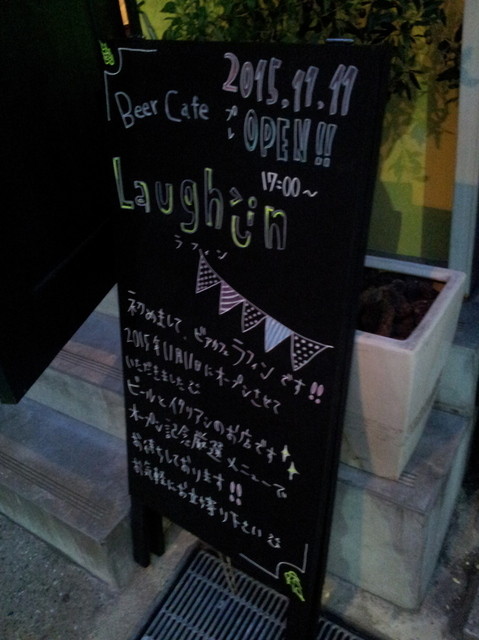 2015.11.11
Beer Cafe
プレ OPEN!!
17:00~
Laughin
ラフィン
初めまして、ビアカフェ ラフィンです!!
2015年11月11日にオープンさせて
いただきました
ビールとイタリアンのお店です
オープン記念厳選メニューで
お待ちしております!!
お気軽にお立寄り下さい